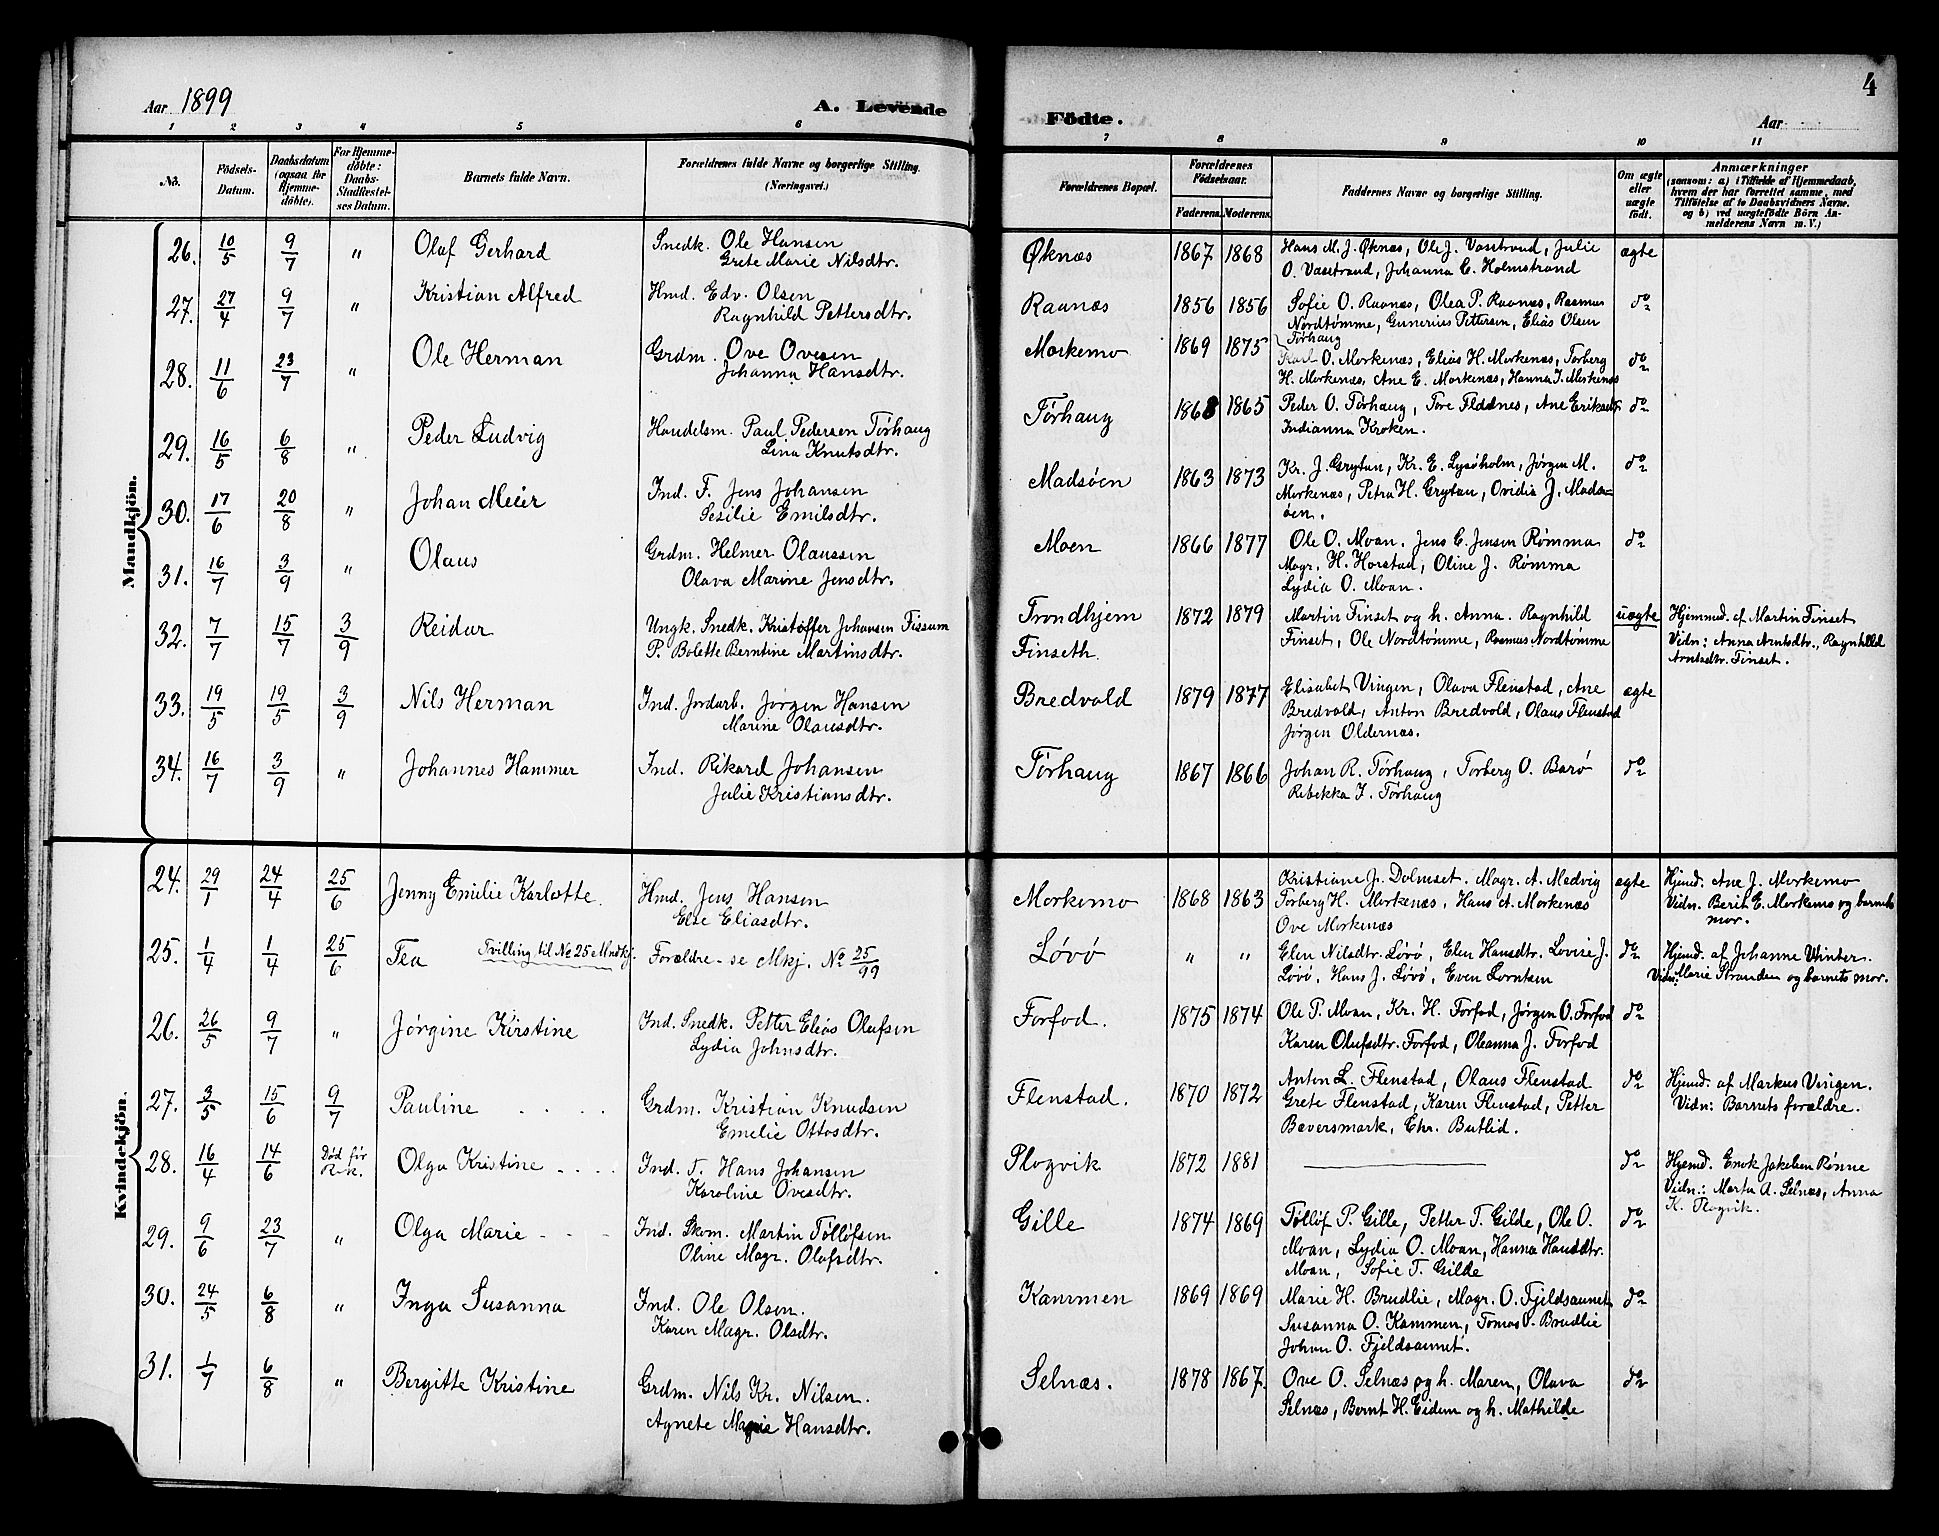 4
Aar 1899
A. Levende
Födte.
Aar
1 2 3 4 5 6 7 8 9 10 11
No.
Födsels-Datum.
Daabsdatum (ogsaa for Hjemme-döbte).
For Hjemme-döbte: Daabs-Stadfæstel-ses Datum.
Barnets fulde Navn.
Forældrenes fulde Navne og borgerlige Stilling.
(Næringsvei.)
Forældrenes Bopæl.
Forældrenes Födselsaar.
Faderens. Moderens.
Faddernes Navne og borgerlige Stilling.
Om ægte eller uægte födt.
Anmærkninger
(saasom: a) i Tilfælde af Hjemmedaab, hvem der har forrettet samme, med Tilföielse af to Daabsvidners Navne. og b) ved uægtefödte Börn An-melderens Navn m. V.)
Mandkjön.
26. 10/5 9/7 " Olaf Gerhard Snedk. Ole Hansen Øknæs 1867 1868 Hans M. J. Øknæs, Ole J. Vasstrand, Julie ægte
Grete Marie Nilsdtr. O. Vasstrand, Johanna C. Holmstrand
27. 27/4 9/7 " Kristian Alfred Hmd. Edv. Olsen Raanæs 1856 1856 Sofie O. Raanæs, Olea P. Raanæs, Rasmus do
Ragnhild Pettersdtr. Nordtømme, Gunerius Pettersen, Elias Olsen
Tørhaug
28. 11/6 23/7 " Ole Herman Grdm. Ove Ovesen Morkemo 1869 1875 Karl O. Morkenæs, Elias H. Morkenæs, Torberg do
Johanna Hansdtr. H. Morkenæs, Ane E. Morkenæs, Hanna J. Morkenæs
29. 16/5 6/8 " Peder Ludvig Handelsm. Paul Pedersen Tørhaug Tørhaug 1868 1865 Peder O. Tørhaug, Tore Fladnes, Ane Eriksdtr. do
Lina Knutsdtr. Indianna Kroken.
30. 17/6 20/8 " Johan Meier Ind. F. Jens Johansen Madsøen 1863 1873 Kr. J. Grytan, Kr. E. Lysøholm, Jørgen M. do
Sesilie Emilsdtr. Morkenæs, Petra H. Grytan, Ovidia J. Mads-
øen.
31. 16/7 3/9 " Olaus Grdm. Helmer Olaussen Moen 1866 1877 Ole O. Moan. Jens C. Jensen Rømma do
Olava Marine Jensdtr. Magr. H. Harstad, Oline J. Rømma
Lydia O. Moan.
32. 7/7 15/7 3/9 Reidar Ungk. Snedk. Kristoffer Johansen Fissum Trondhjem 1872 1879 Martin Finset og h. Anna. Ragnhild uægte Hjemmed. af Martin Finset
P. Bolette Berntine Martinsdtr. Finseth. Finset, Ole Nordtømme, Rasmus Nordtømme Vidn: Anna Arntsdtr., Ragnhild
Arntsdtr. Finset.
33. 19/5 19/5 3/9 Nils Herman Ind. Jordarb. Jørgen Hansen Bredvold 1879 1877 Elisabet Vingen, Olava Flenstad, Ane ægte
Marine Olausdtr. Bredvold, Anton Bredvold, Olaus Flenstad
Jørgen Oldernæs.
34. 16/7 3/9 " Johannes Hammer Ind. Rikard Johansen Tørhaug 1867 1866 Johan R. Tørhaug, Torberg O. Barø do
Julie Kristiansdtr. Rebekka J. Tørhaug
Kvindekjön.
24. 29/1 24/4 25/6 Jenny Emilie Karlotte. Hmd. Jens Hansen Morkemo 1868 1863 Kristiane J. Dolmset. Magr. A. Medvig ægte Hjemd. Ane J. Morkemo
Else Eliasdtr. Torberg H. Morkenæs, Hans A. Morkenæs Vidn. Berit E. Morkemo og barnets
Ove Morkenæs mor.
25. 1/4 1/4 25/6 Tea Tvilling til No 25 Mndkj. Forældre - se Mkj. No 25/99 Løvø " " Elen Nilsdtr. Løvø, Elen Hansdtr. Lovise J. do Hjemd. af Johanne Winter.
Løvø, Hans J. Løvø, Even Lorntsen Vidn: Marie Stranden og barnets mor.
26. 26/5 9/7 " Jørgine Kirstine Ind. Snedk. Petter Elias Olufsen Forfod. 1875 1874 Ole P. Moan, Kr. H. Forfod, Jørgen O. Forfod do
Lydia Johnsdtr. Karen Olufsdtr. Forfod, Oleanna J. Forfod
27. 3/5 15/6 9/7 Pauline Grdm. Kristian Knudsen Flenstad. 1870 1872 Anton L. Flenstad, Olaus Flenstad do Hjemd. af Markus Vingen.
Emelie Ottosdtr. Grete Flenstad, Karen Flenstad, Petter Vidn: Barnets forældre.
Bæversmark, Chr. Butlid.
28. 16/4 14/6 Død før Olga Kristine Ind. F. Hans Johansen Plogvik 1872 1881 do Hjemd. Enok Jakobsen Rønne
Karoline Ovesdtr. Vidn.: Marta A. Selnæs, Anna
K. Plogvik.
29. 9/6 23/7 " Olga Marie Ind. Skom. Martin Tølløfsen Gille 1874 1869 Tølløf P. Gille, Petter T. Gilde, Ole O. do
Oline Magr. Olafsdtr. Moan, Lydia O. Moan, Hanna Hansdtr.
Moan, Sofie T. Gilde
30. 24/5 6/8 " Inga Susanna Ind. Ole Olsen. Kammen 1869 1869 Marie H. Brudlie, Magr. O. Fjeldsaunet do
Karen Magr. Olsdtr. Susanna O. Kammen, Tomas O. Brudlie
Johan O. Fjeldsaunet.
31. 1/7 6/8 " Bergitte Kristine Grdm. Nils Kr. Nilsen. Selnæs. 1878 1867. Ove O. Selnæs og h. Maren, Olava do
Agnete Marie Hansdtr. Selnæs, Bernt H. Eidem og h. Mathilde